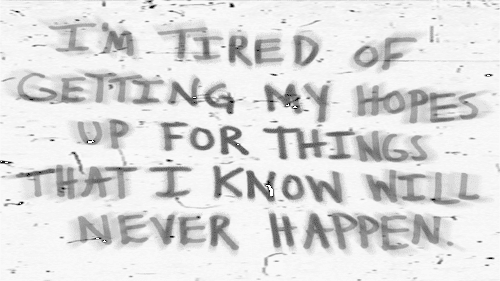 I'M TIRED OF
GETTING MY HOPES
UP FOR THINGS
THAT I KNOW WILL
NEVER HAPPEN.